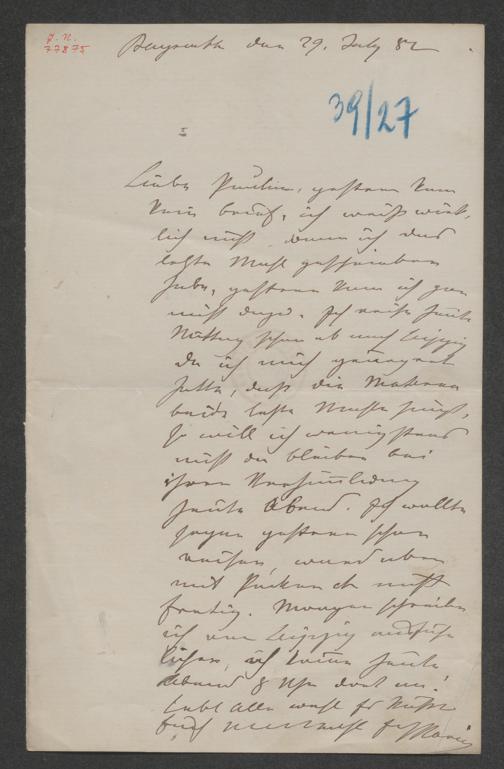 J. N.
77875
Bayreuth den 29. July 82
39/27
I
Liebe Pauline, gestern kam
Dein Brief, ich weiß wirk-
lich nicht, wann ich das
letzte Mal geschrieben
habe, gestern kam ich gar
nicht dazu. Ich reise heute
Mittag schon ab nach Leipzig
da ich mich geärgert
hatte, daß die Materna
beide letzte Male singt,
so will ich wenigstens
nicht da bleiben bei
ihrer
heute Abend. Ich wollte
sogar gestern schon
reisen, wurde aber
mit Packen etc nicht
fertig. Morgen schreibe
ich von Leipzig ausführ-
licher, ich komme heute
Abend 8 Uhr dort an.
Lebt alle wohl es küßt
Euch